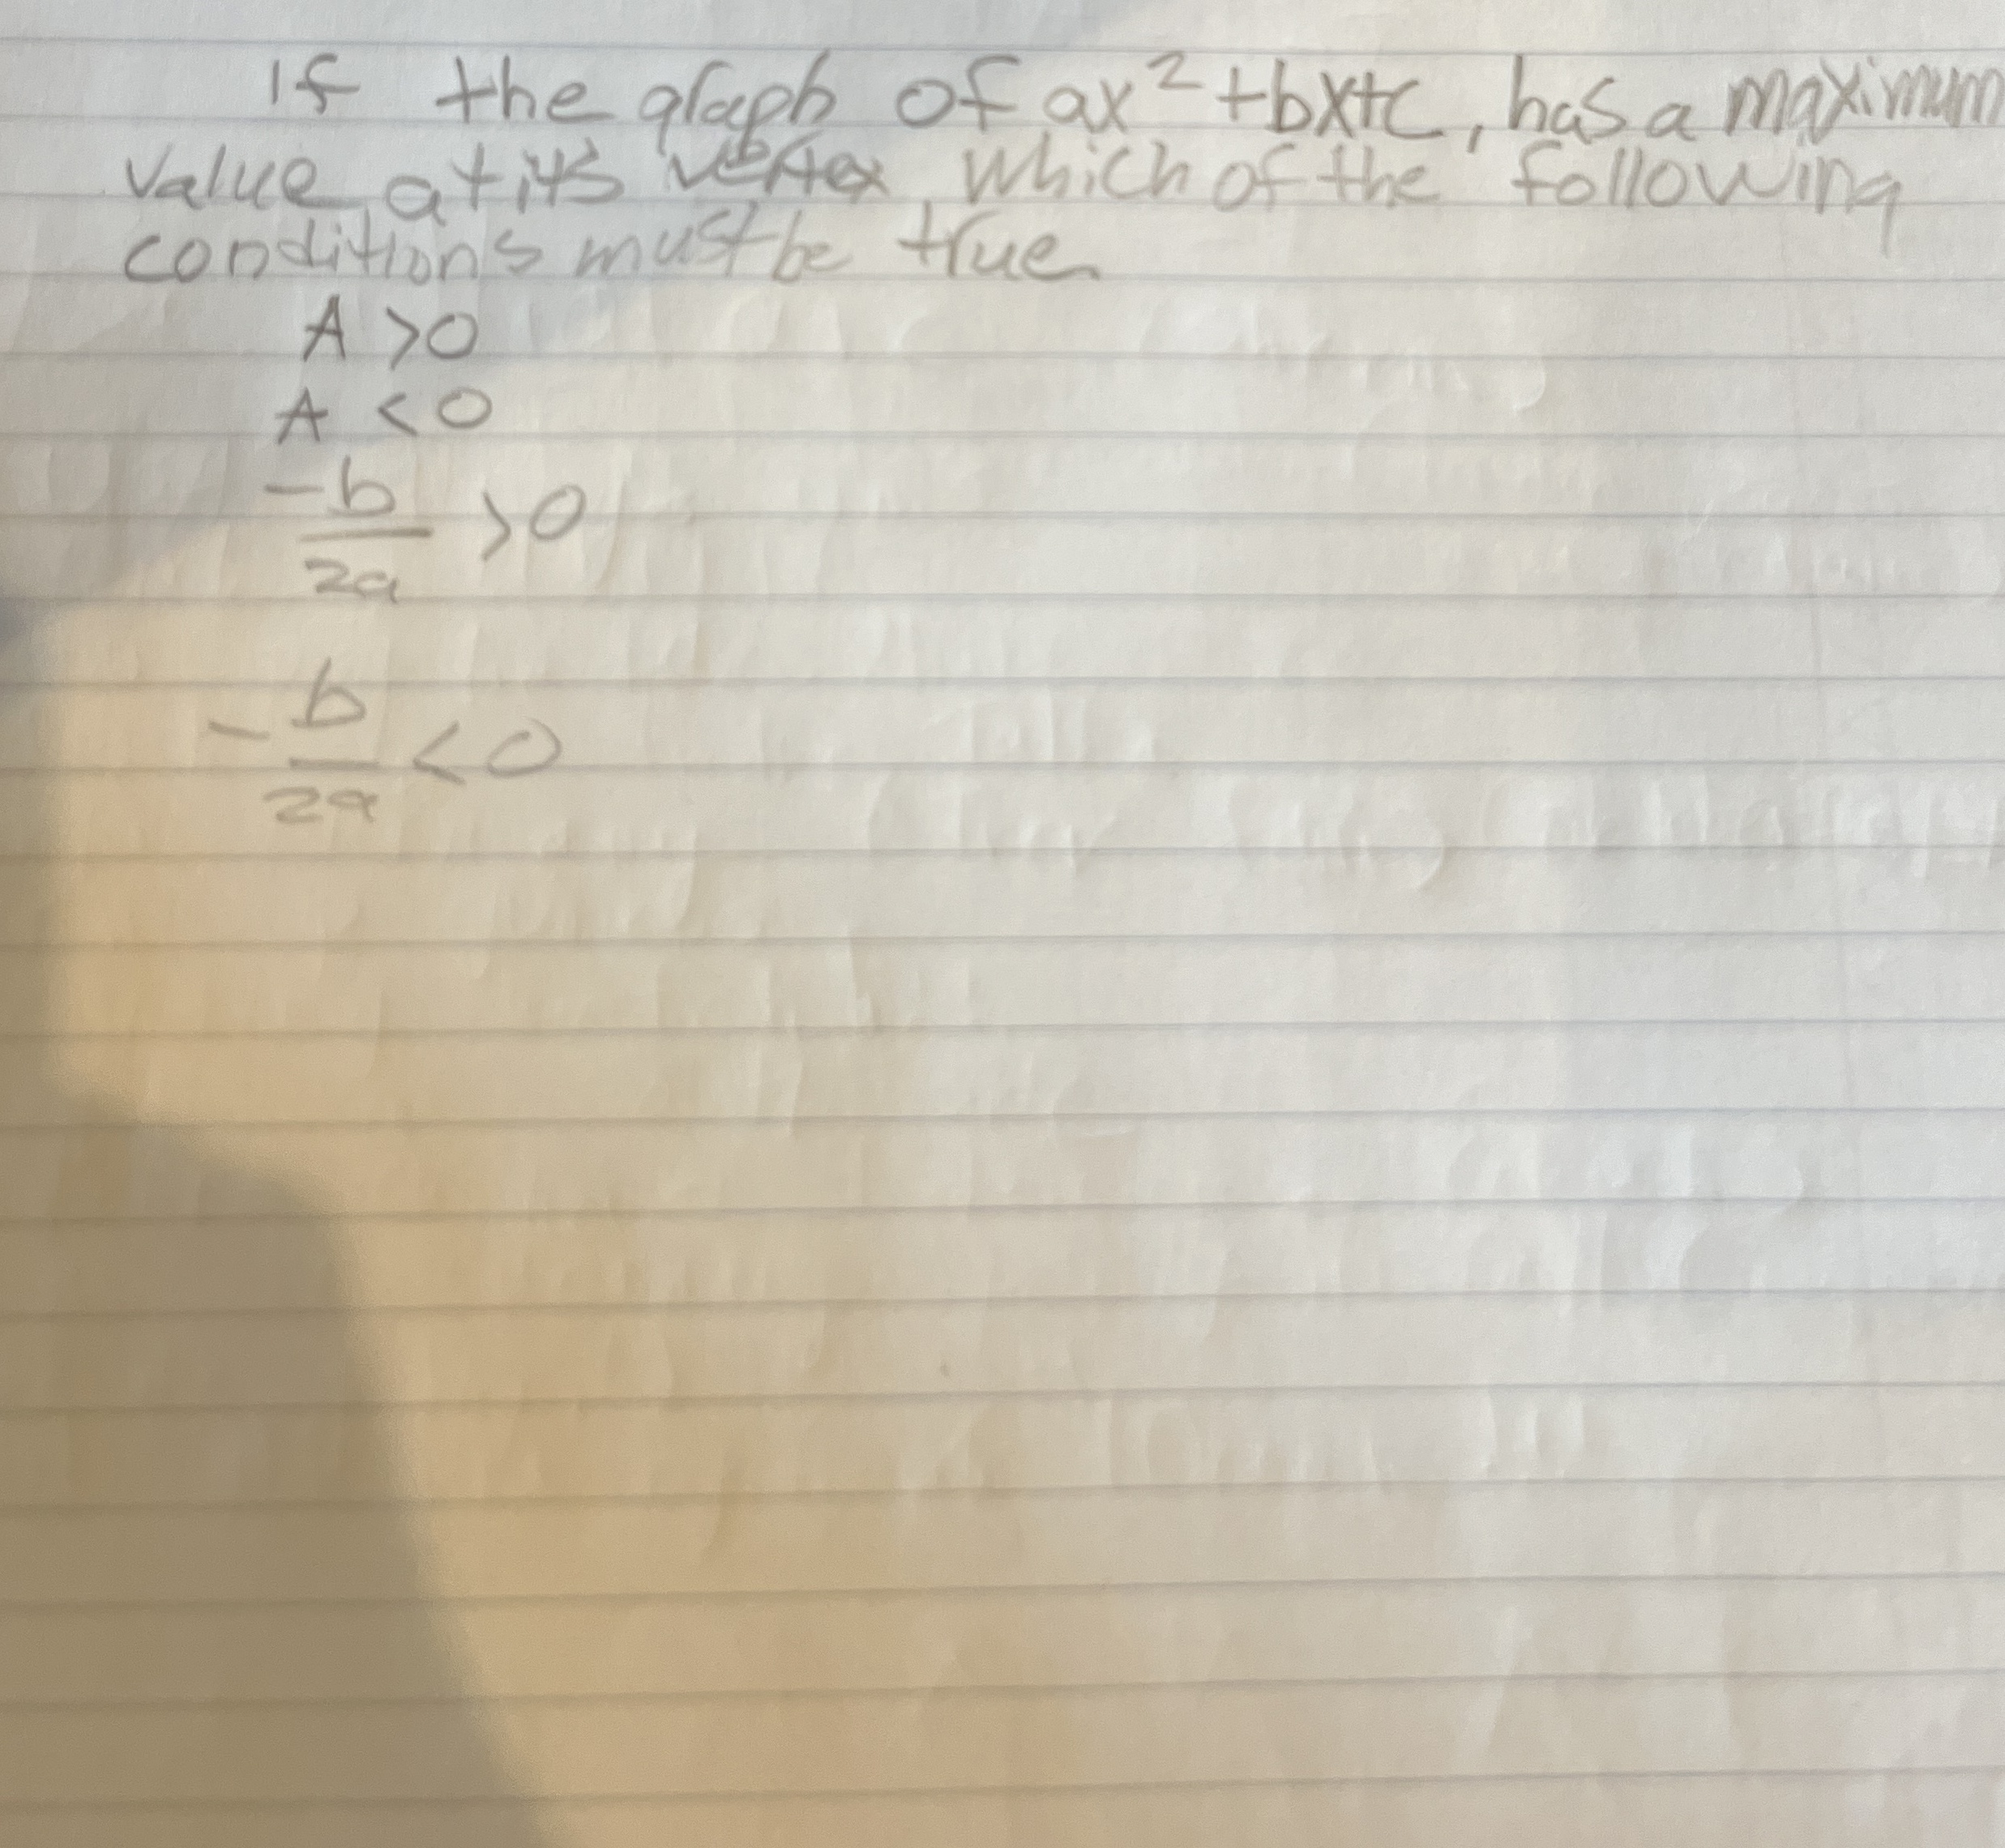 If the graph of ax² + bx + c, has a maximum
value at its vertex, which of the following
conditions must be true.
A > 0
A < 0
-b/2a > 0
-b/2a < 0